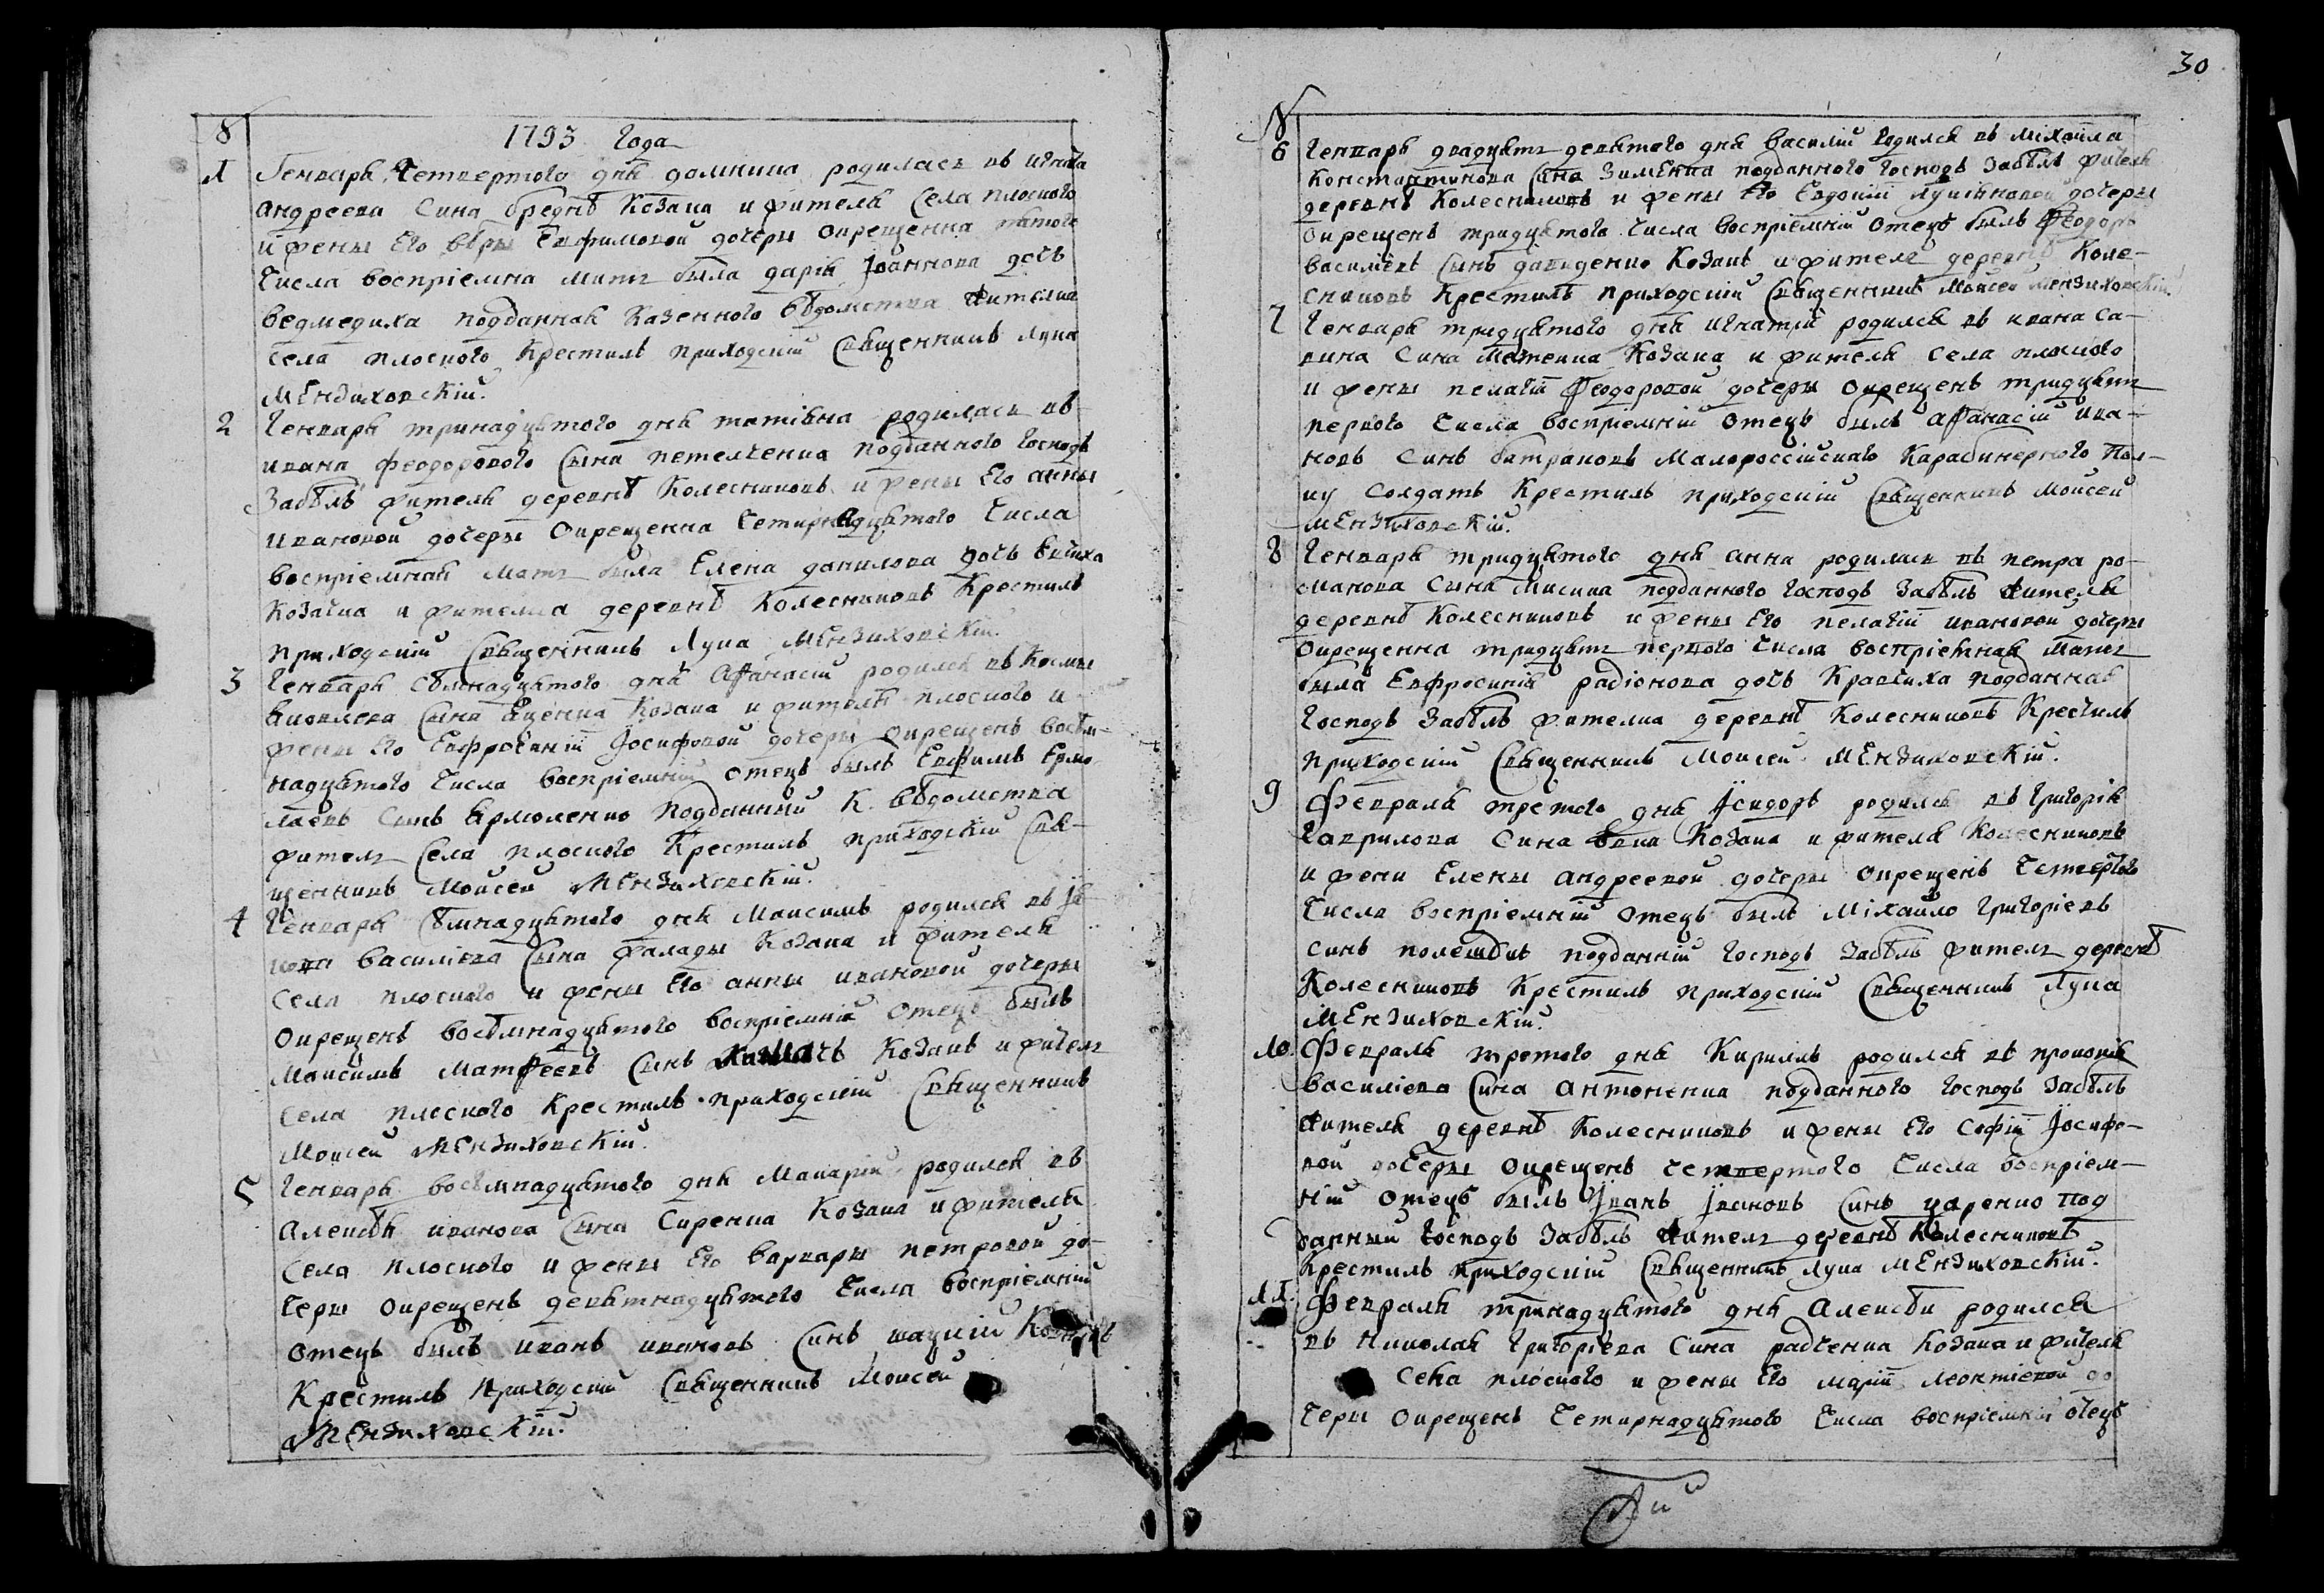 №
1793 года
1 Генваря четвертого дня домнина родилась въ игната
андреева сина бреднѣ козака и жителя села плоского
и жены его вѣры евфимовой дочеры окрещенна пятого
числа воспріемна мать была дарія Іоаннова дочь
ведмедиха подданная казенного вѣдомства жителка
села плоского крестилъ приходскій священникъ лука
мензиховскій.
2 Генваря тринадцятого дня татіяна родилась въ
ивана феодорового сына петелченка подданного господъ
Забѣлъ жителя деревнѣ Колесниковъ и жены его анны
ивановой дочеры окрещенна четирнадцятого числа
воспріемная мать была Елена данилова дочь
козачка и жителка деревнѣ Колесниковъ Крестилъ
приходскій священникъ лука мензиховскій.
3 Генваря сѣмнадцятого дня афанасій родился въ Космы
яковлева сына яценка козака и жителя плоского и
жены его Евфросиніи Іосифовой дочеры окрещенъ восѣм-
надцятого числа воспріемній отецъ былъ Евфимъ Ермо
лаевъ синъ ярмоленко подданный К. вѣдомства
житель села плоского Крестилъ приходскій свя-
щенникъ Моисей мензиховскій.
4 Генваря сѣмнадцятого дня Максимъ родился въ Iя-
кова василіева сына фалады козака и жителя
села плоского и жены его анны ивановой дочеры
окрещенъ восѣмнадцятого воспріемній отецъ былъ
Максимъ Матфеевъ сынъ козакъ и житель
села плоского крестилъ приходскій священникъ
Моисей мензиховскій.
5 Генваря восѣмнадцятого дня Макарій родился въ
алексѣя иванова сына Сиренка козака и жителя
села плоского и жены его варвары петровой до-
черы окрещенъ девятнадцятого числа воспріемній
отецъ былъ иванъ ивановъ синъ козакъ
Крестилъ приходскій священникъ Моисей
мензиховскій.
30
№
6 Генваря двадцять девятого дня василій родился въ міхаила
константинова сина зименка подданного господъ Забѣлъ жителя
деревнѣ Колесниковъ и жены его Евдокіи лукіяновой дочеры
окрещенъ тридцятого числа воспріемній отецъ былъ Феодоръ
василіевъ сынъ давиденко козакъ и житель деревнѣ Коле-
сниковъ Крестилъ приходскій священникъ Моисей мензиховскій
7 Генваря тридцятого дня игнатій родился въ ивана са-
вина сина козака и жителя села плоского
и жены пелагіи Феодоровой дочеры окрещенъ тридцять
первого числа воспріемній отецъ былъ афанасій ива-
новъ синъ батраковъ малороссійскаго карабинерного пол-
ку солдатъ Крестилъ приходскій священникъ Моисей
мензиховскій.
8 Генваря тридцятого дня анна родилась въ петра ро-
манова сына лисика подданного господъ Забѣлъ жителя
деревнѣ Колесниковъ и жены его пелагіи ивановой дочеры
окрещенна тридцять первого числа воспріемная мать
была Евфросинія радіонова дочь кравчиха подданная
господъ Забѣлъ жителка деревнѣ Колесниковъ Крестилъ
приходскій священникъ Моисей мензиховскій.
9 Февраля третого дня Ісидоръ родился въ григорія
гаврилова сина козака и жителя Колесниковъ
и жени Елены андреевой дочеры окрещенъ четвертого
числа воспріемній отецъ былъ міхайло григоріевъ
синъ подданній господъ Забѣлъ житель деревнѣ
Колесниковъ Крестилъ приходскій священникъ лука
мензиховскій.
10. Февраля третого дня Кирилъ родился въ прокопія
василіева сина антоненка подданного господъ Забѣлъ
жителя деревнѣ Колесниковъ и жены его софіи Іосифо-
вой дочеры окрещенъ четвертого числа воспріем-
ній отецъ былъ Іванъ Івановъ синъ царенко под
данный господъ Забѣлъ житель деревнѣ Колесниковъ
Крестилъ приходскій священникъ лука мензиховскій.
11. Февраля тринадцятого дня алексѣй родился
въ николая григоріева сина радченка козака и жителя
села плоского и жены его маріи леонтіевой до
черы окрещенъ четирнадцятого числа воспріемній отецъ